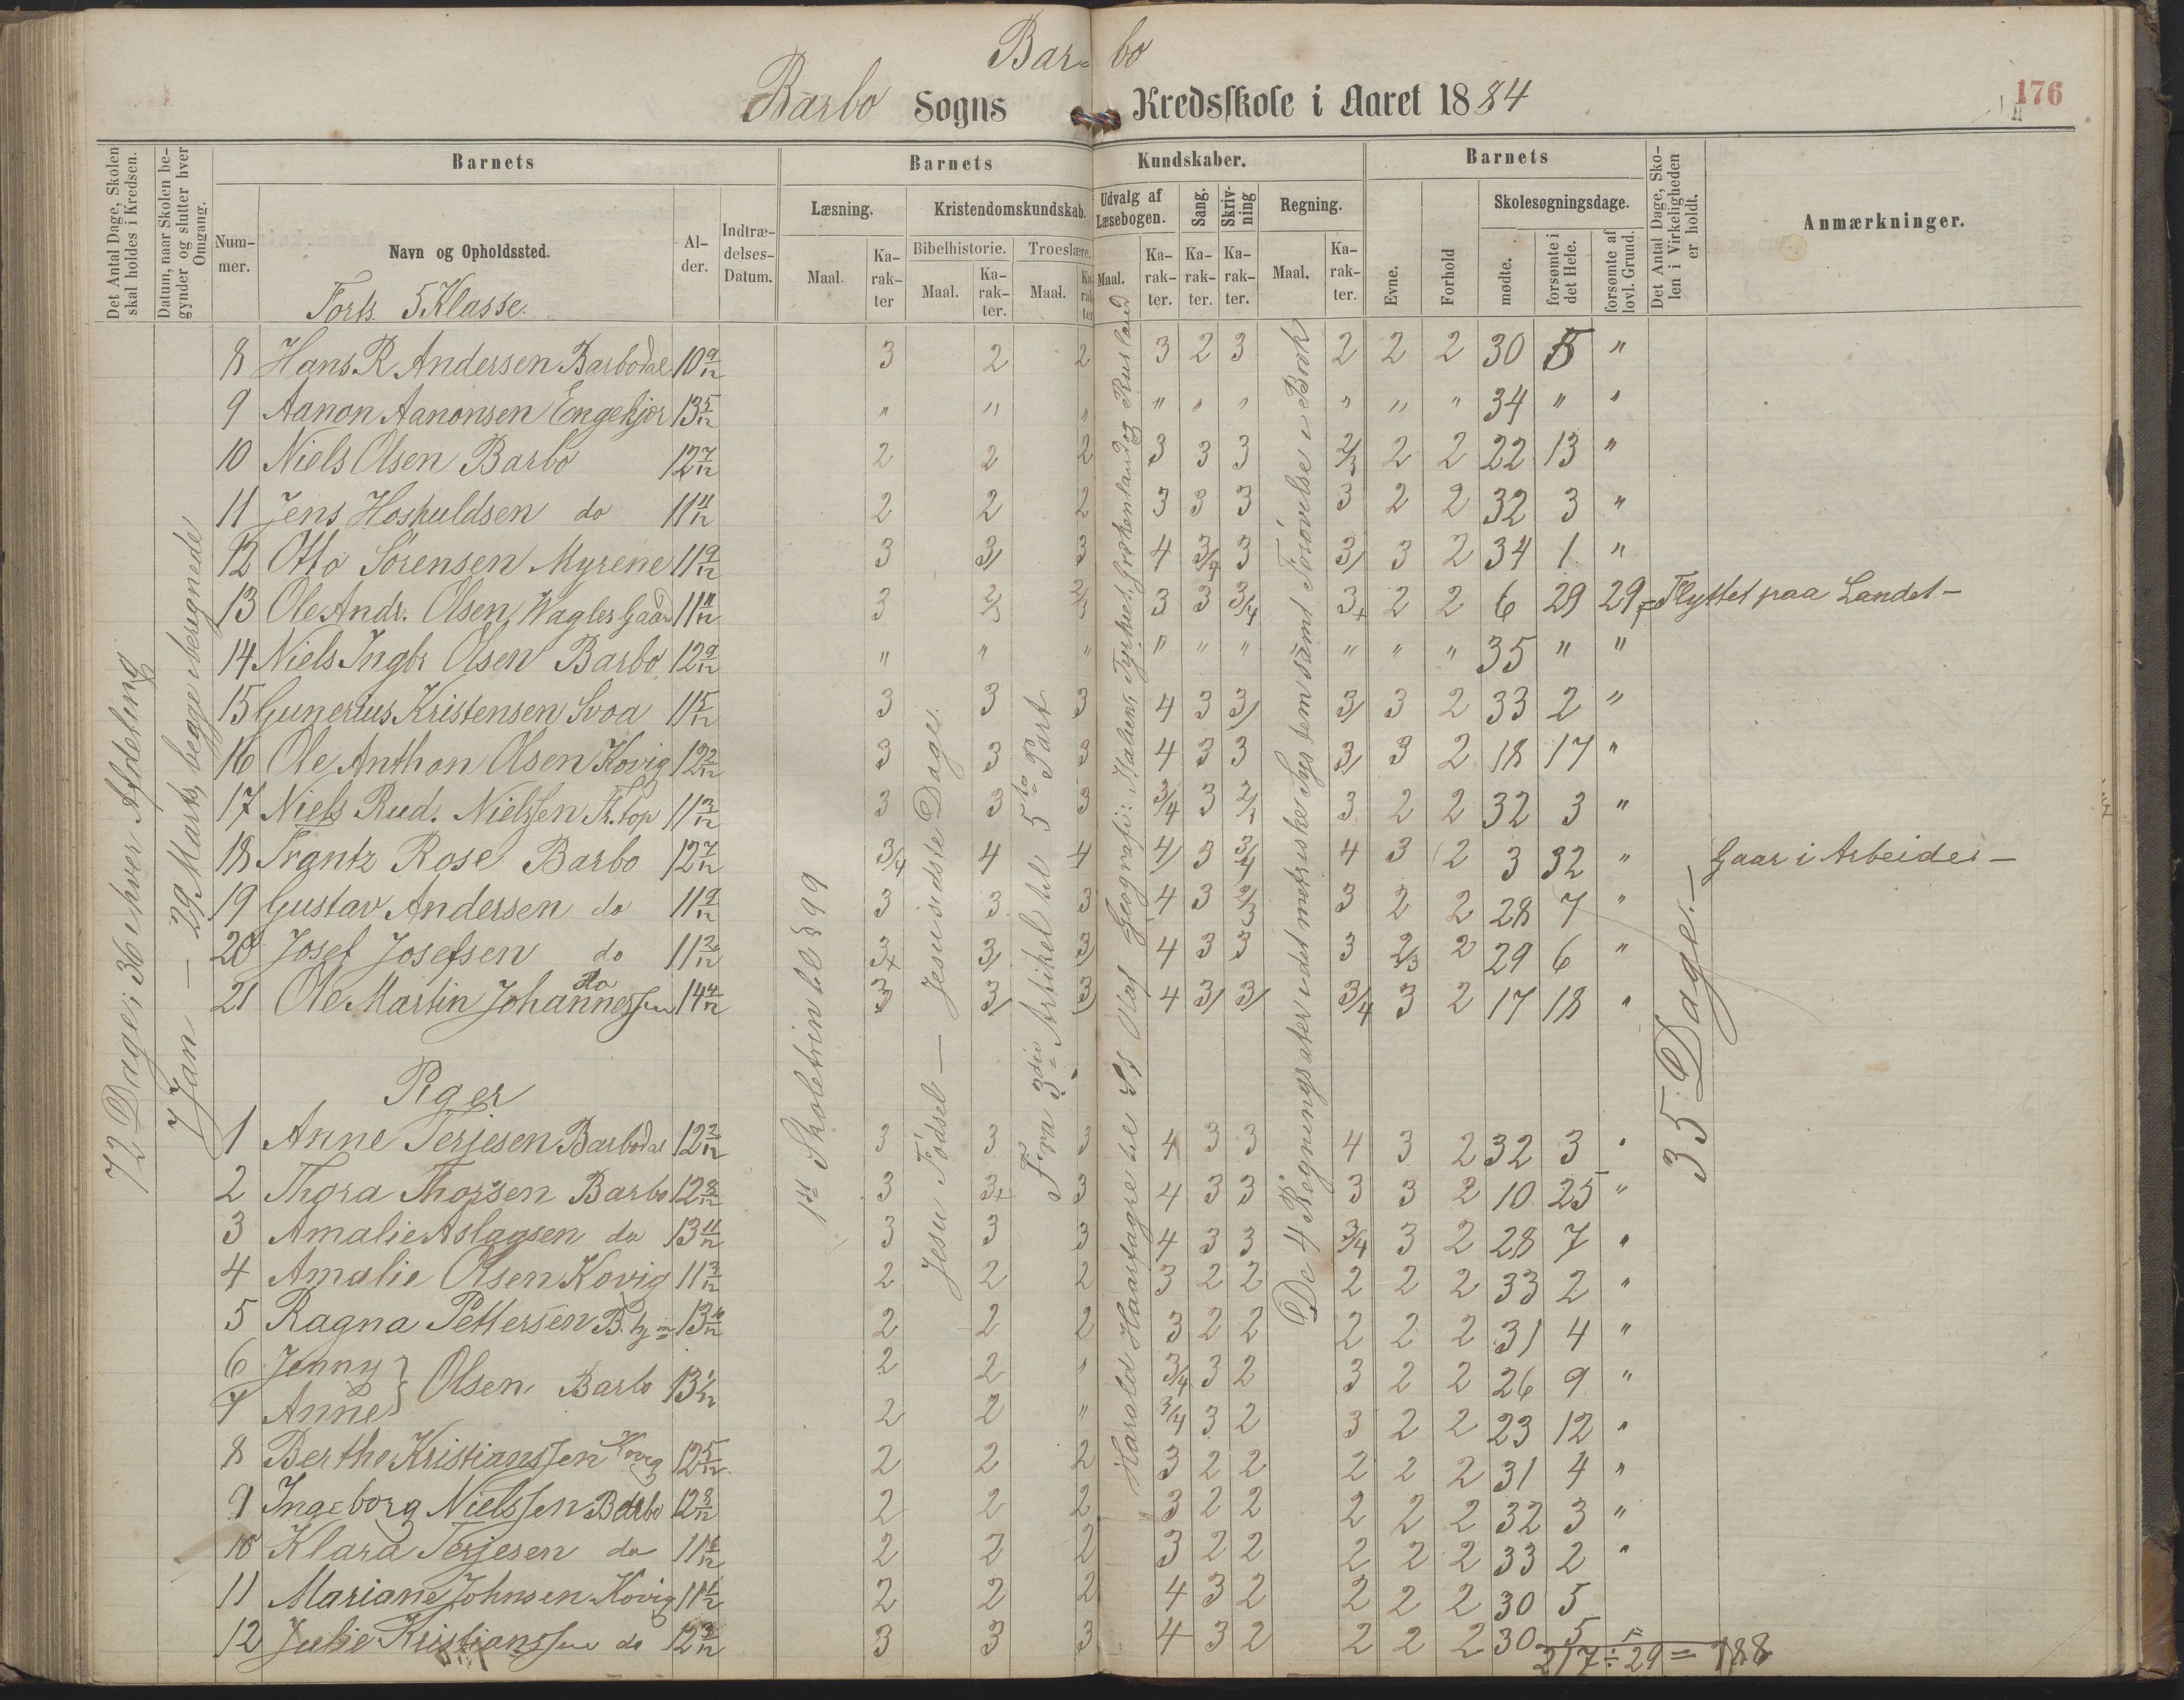 Bar= bo
Barbo Sogns Kredsskole i Aaret 1884
176
Det Antal Dage, Skolen skal holdes i Kredsen.
Datum, naar Skolen begynder og slutter hver Omgang.
Barnets
Barnets Kundskaber.
Barnets
Det Antal Dage, Skolen i Virkeligheden er holdt.
Anmærkninger.
Nummer.
Navn og Opholdssted.
Alder.
Indtrædelses-Datum.
Læsning.
Kristendomskundskab.
Udvalg af Læsebogen.
Sang.
Skrivning
Regning.
Evne.
Forhold
Skolesøgningsdage.
Bibelhistorie.
Troeslære.
Maal.
Karakter
Maal.
Karakter.
Maal.
Karakter
Maal.
Karakter.
Karakter.
Karakter.
Maal.
Karakter.
mødte.
forsømte i det Hele.
forsømte af lovl. Grund.
Forts. 5 Klasse.
72 Dage; 36 i hver Afdeling
7 Jan — 29 Marts, begge iberegnede
1ste Skoletrin til § 99
Jesu Fødsel — Jesu sidste Dage.
Fra 3die Artikel til 5te Part
Harald Haarfagre til St Olaf Geografi: Italien, Tyrkiet, Grækenland og Rusland
De 4 Regningsarter i det metriske System samt Forøvelse i Brøk
35 Dage.—
8 Hans R Andersen Barbodal 10 9/12 3 2 2 3 2 3 2 2 2 30 5 "
9 Aanon Aanonsen Engekjær 13 5/12 " " " " " " " " " 34 " "
10 Niels Olsen Barbo 12 7/12 2 2 2 3 3 3 2/3 2 2 22 13 "
11 Jens Hoskuldsen do 11 11/12 2 2 2 3 3 3 3 2 2 32 3 "
12 Otto Sørensen Myrene 11 9/12 3 3/ 3 4 3/4 3 3/ 3 2 34 1 "
13 Ole Andr. Olsen, Wagles Gaard 11 11/12 3 2/3 2/3 3 3 3/4 3+ 2 2 6 29 29 = Flyttet paa Landet –
14 Niels Ingbr Olsen Barbo 12 9/12 " " " " " " " " " 35 " "
15 Gunerius Kristensen Svoa 11 5/12 3 3 3 4 3 3/ 3/ 3 2 33 2 "
16 Ole Anthon Olsen Kovig 12 2/12 3 3 3 4 3 3 3/ 3 2 18 17 "
17 Niels Rud. Nielssen Fr.top 11 3/12 3 3 3 3/4 3 2/3 3 2 2 32 3 "
18 Frantz Rose Barbo 12 7/12 3/4 4 4 4/ 3 3/4 4 3 2 3 32 " Gaar i Arbeide –
19 Gustav Andersen do 11 9/12 3 3 3 4 3 2/3 3 2 2 28 7 "
20 Josef Josefsen do 11 2/12 3+ 3/ 3/ 4 3 3 3 2/3 2 29 6 "
21 Ole Martin Johannessen do 14 4/12 3/ 3/ 3/ 4 3/ 3/ 3/4 3 2 17 18 "
Piger
1 Anne Terjesen Barbodal 12 2/12 3 3 3 4 3 3 4 3 2 32 3 "
2 Thora Thorsen Barbo 12 8/12 3 3+ 3 4 3 3 3 3 2 10 25 "
3 Amalie Aslagsen do 13 11/12 3 3 3 4 3 3 3/4 3 2 28 7 "
4 Amalie Olsen Kovig 11 3/12 2 2 2 3 2 2 2 2 2 33 2 "
5 Ragna Pettersen 13 10/12 2 2 2 3 2 2 2 2 2 31 4 "
6 Jenny } Olsen Barbo 13 1/12 2 2 " 3/4 3 2 3 2 2 26 9 "
7 Anne } 2 2 " 3/4 3 2 3 2 2 23 12 "
8 Berthe Kristianssen Kovig 12 5/12 2 2 2 3 2 2 2 2 2 31 4 "
9 Ingeborg Nielssen Barbo 12 8/12 2 2 2 3 2 2 2 2 2 32 3 "
10 Klara Terjesen do 11 6/12 2 2 2 3 2 2 2 2 2 33 2 "
11 Mariane Johnsen Kovig 11 1/12 2 2 2 4 3 2 2 2 2 30 5
12 Julie Kristianssen do 12 3/12 3 3 3 4 3 2 2 2 2 30 5 "
217 ÷ 29 = 188